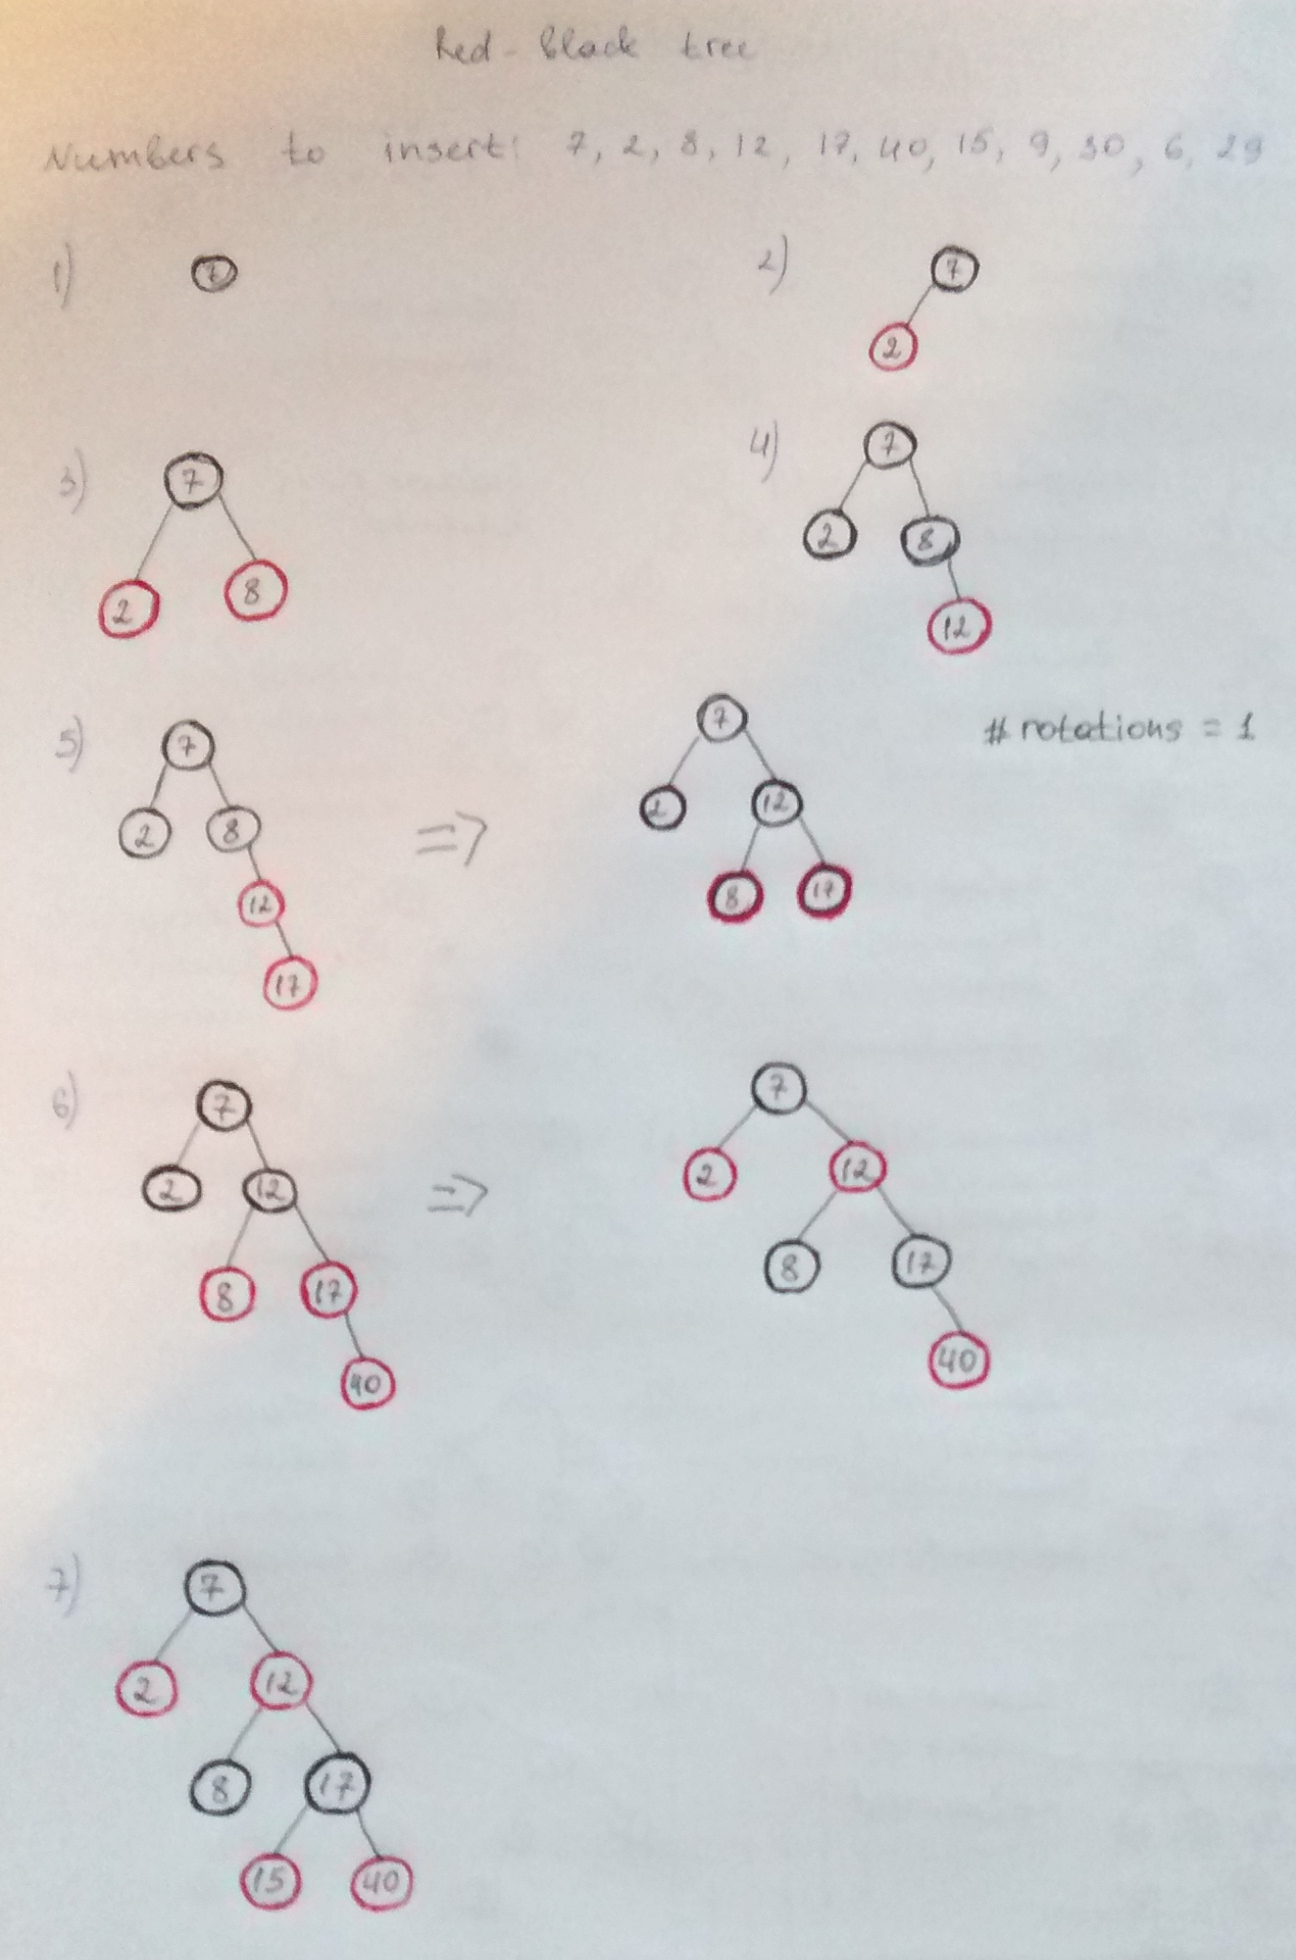 Red-Black tree
Numbers to insert: 7, 2, 8, 12, 17, 40, 15, 9, 30, 6, 29
1)
7
2)
7
2
3)
7
2 8
4)
7
2 8
12
5)
7
2 8
12
17
=>
7
2 12
8 17
# rotations = 1
6)
7
2 12
8 17
40
=>
7
2 12
8 17
40
7)
7
2 12
8 17
15 40